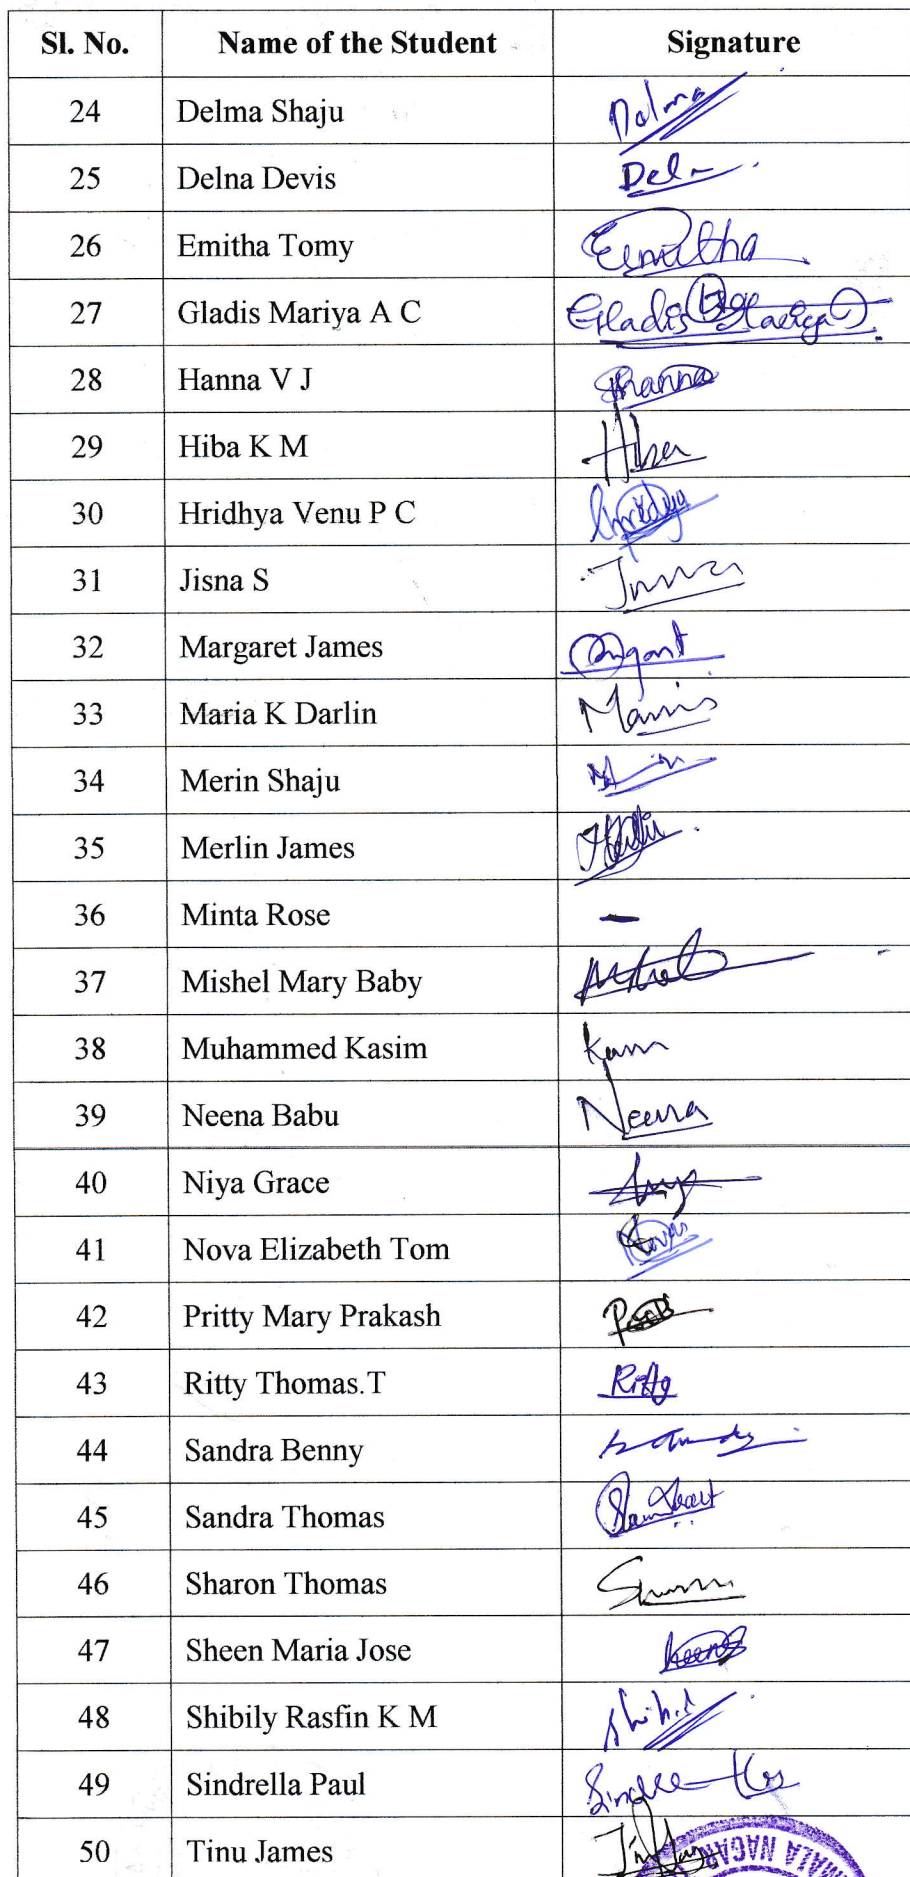 Sl. No. Name of the Student Signature
24 Delma Shaju Delma
25 Delna Devis Deln
26 Emitha Tomy Emitha
27 Gladis Mariya A C Gladis Mariya
28 Hanna V J Hanna
29 Hiba K M Hiba
30 Hridhya Venu P C Hridya
31 Jisna S
32 Margaret James
33 Maria K Darlin
34 Merin Shaju
35 Merlin James
36 Minta Rose –
37 Mishel Mary Baby
38 Muhammed Kasim
39 Neena Babu Neena
40 Niya Grace
41 Nova Elizabeth Tom
42 Pritty Mary Prakash
43 Ritty Thomas.T Ritty
44 Sandra Benny
45 Sandra Thomas
46 Sharon Thomas
47 Sheen Maria Jose
48 Shibily Rasfin K M
49 Sindrella Paul
50 Tinu James
MALA NAGAR